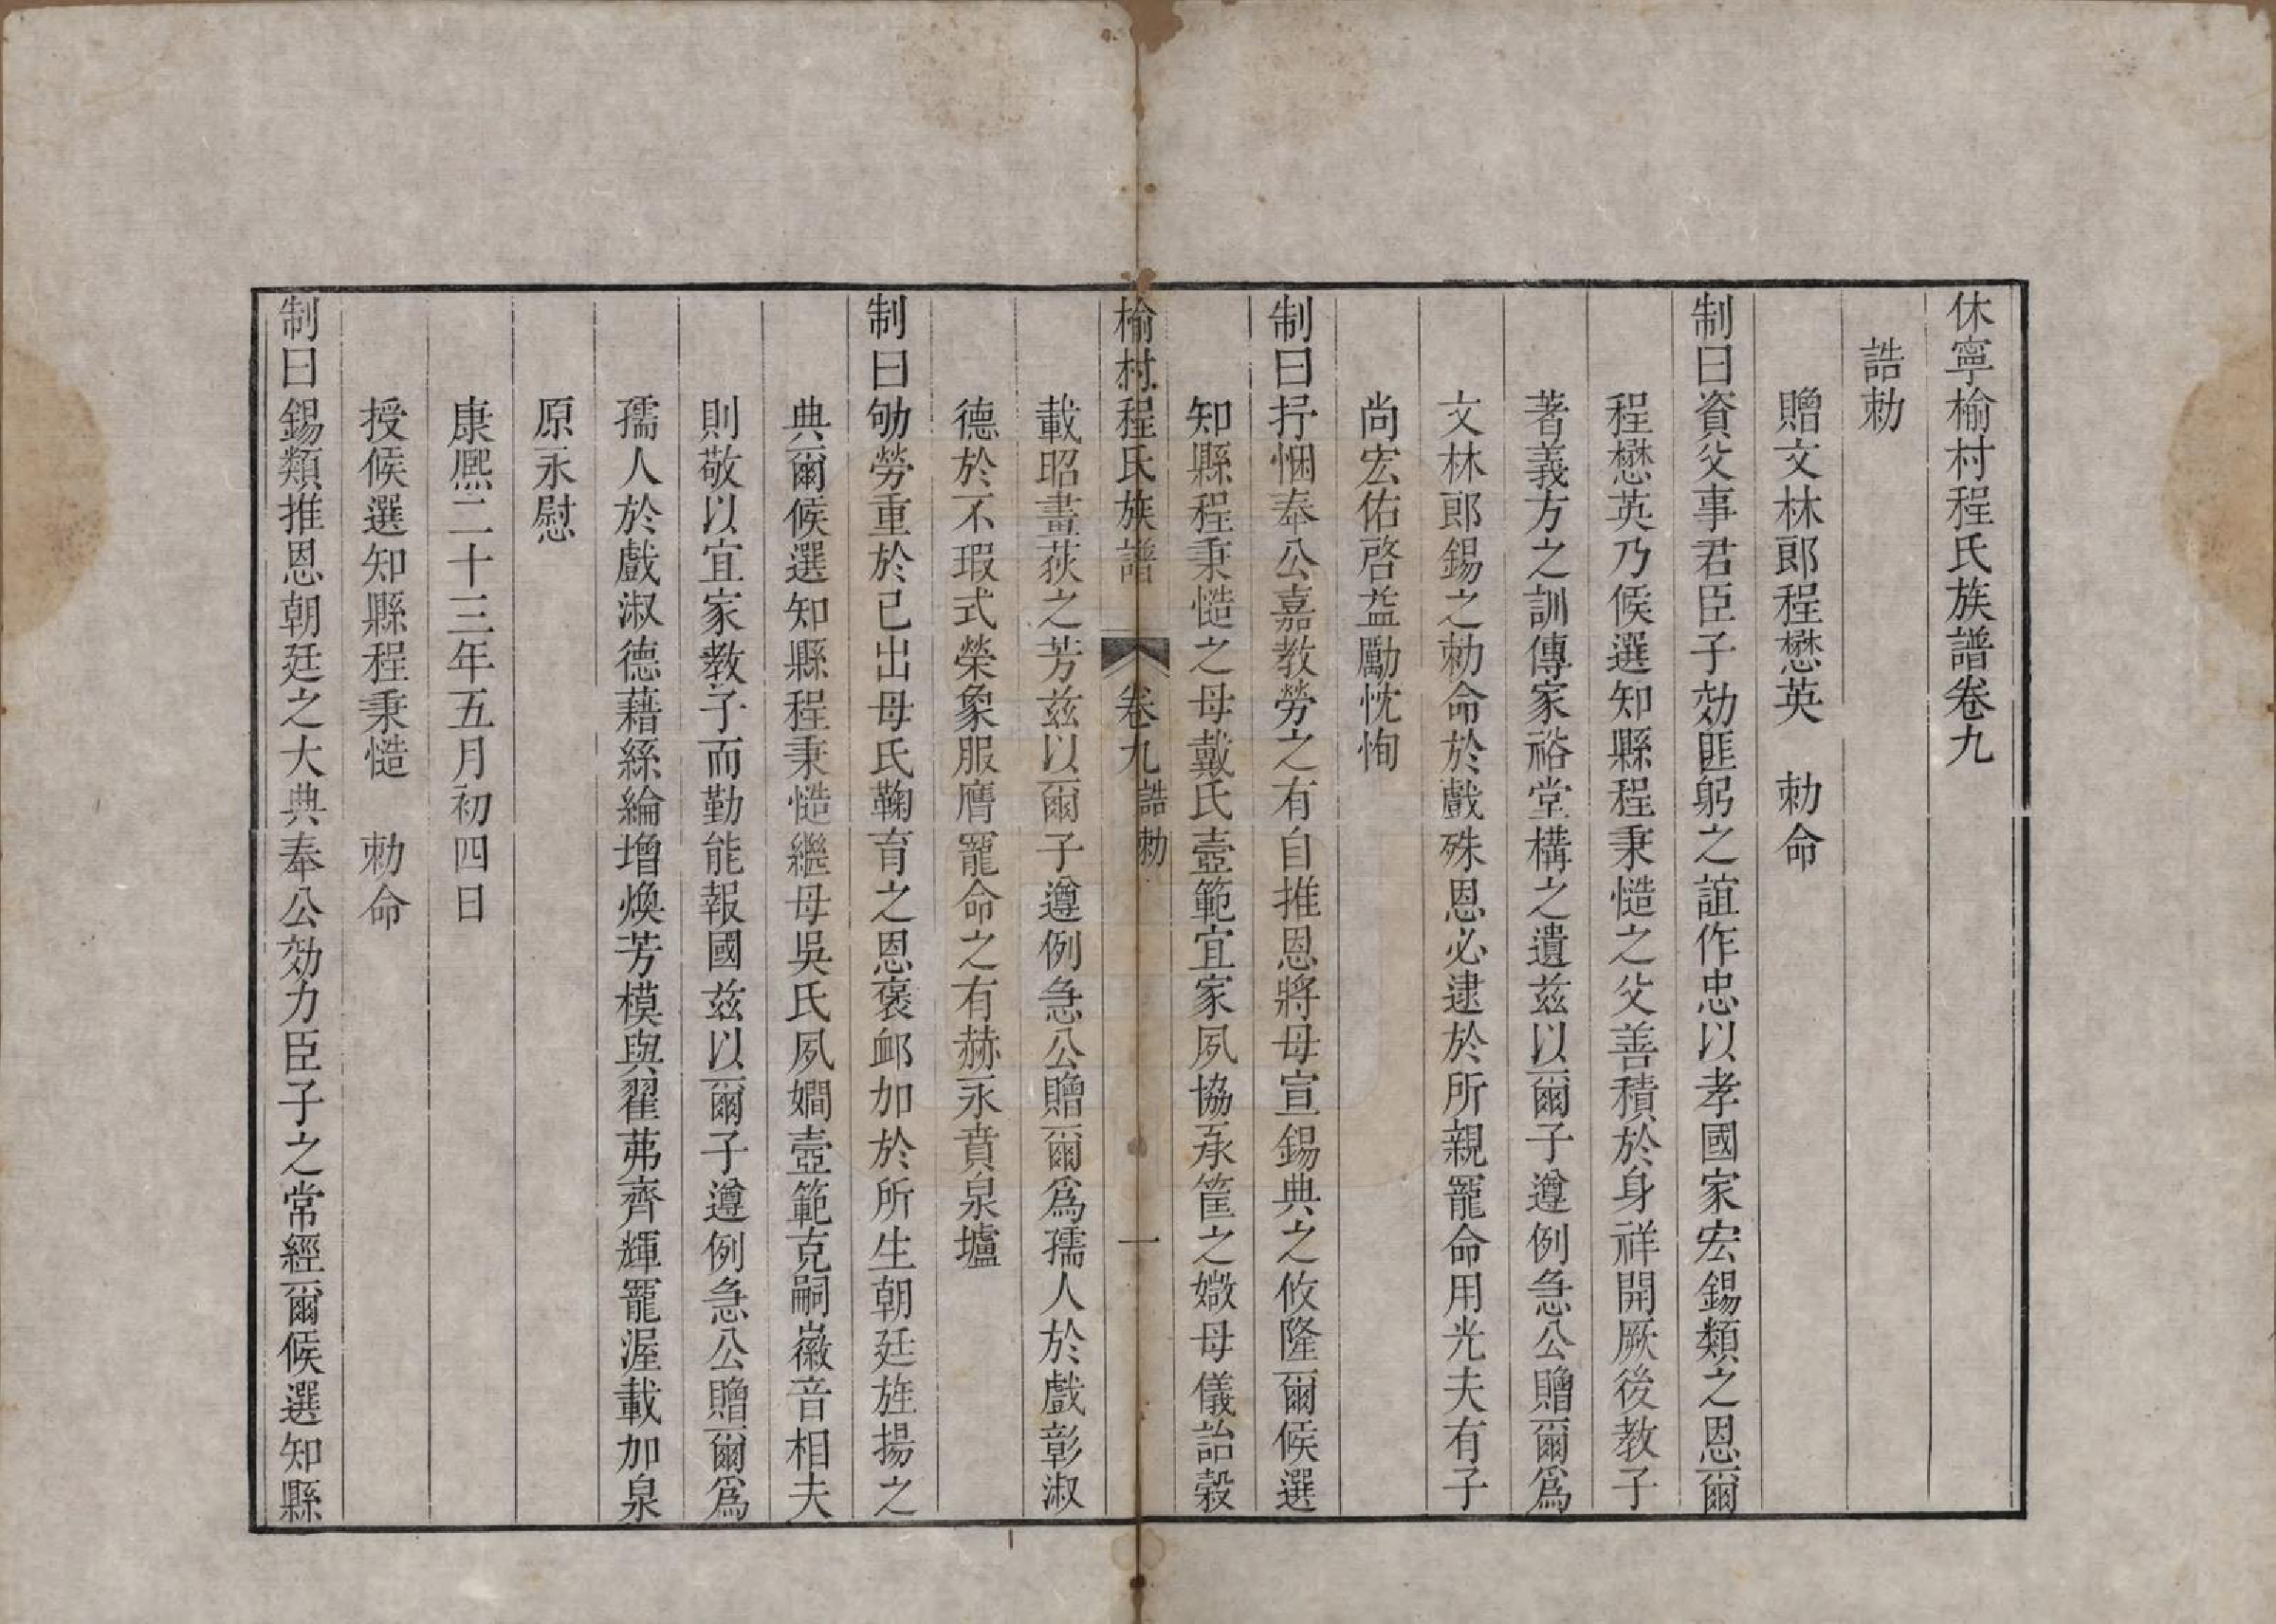 休寧榆村程氏族譜卷九
誥勅
贈文林郎程懋英　勅命
制曰資父事君臣子効匪躬之誼作忠以孝國家宏錫類之恩爾
程懋英乃候選知縣程秉慥之父善積於身祥開厥後教子
著義方之訓傳家裕堂構之遺兹以爾子遵例急公贈爾爲
文林郎錫之勅命於戲殊恩必逮於所親寵命用光夫有子
尚宏佑啓益勵忱恂
制曰抒悃奉公嘉教勞之有自推恩將母宣錫典之攸隆爾候選
知縣程秉慥之母戴氏壼範宜家夙協承筐之媺母儀詒穀
榆村程氏族譜　卷九誥勅　一
載昭畫荻之芳兹以爾子遵例急公贈爾爲孺人於戲彰淑
德於不瑕式榮象服膺寵命之有赫永賁泉壚
制曰劬勞重於己出母氏鞠育之恩褒衈加於所生朝廷旌揚之
典爾候選知縣程秉慥繼母吳氏夙嫺壼範克嗣徽音相夫
則敬以宜家教子而勤能報國兹以爾子遵例急公贈爾爲
孺人於戲淑德藉絲綸增煥芳模與翟茀齊輝寵渥載加泉
原永慰
康熙二十三年五月初四日
授候選知縣程秉慥　勅命
制曰錫類推恩朝廷之大典奉公効力臣子之常經爾候選知縣